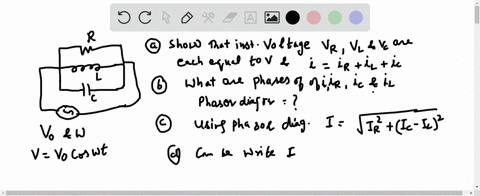 R
L
C
V₀ & ω
V = V₀ cos ωt
(a) Show That inst. Voltage V_R, V_L & V_C are
each equal to V & i = i_R + i_L + i_C
(b) What are phases of of i, i_R, i_C & i_L
Phasor diagr = ?
(c) Using phasor diag. I = √(I_R² + (I_C - I_L)²)
(d) Can be write I